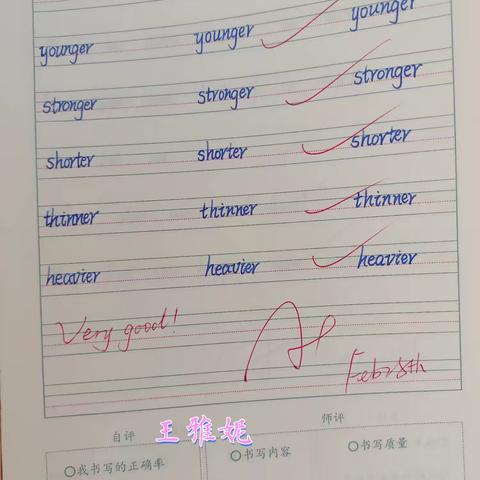 younger younger younger
stronger stronger stronger
shorter shorter shorter
thinner thinner thinner
heavier heavier heavier
Very good!
Feb 18th
自评 王雅妮 师评
我书写的正确率 书写内容 书写质量